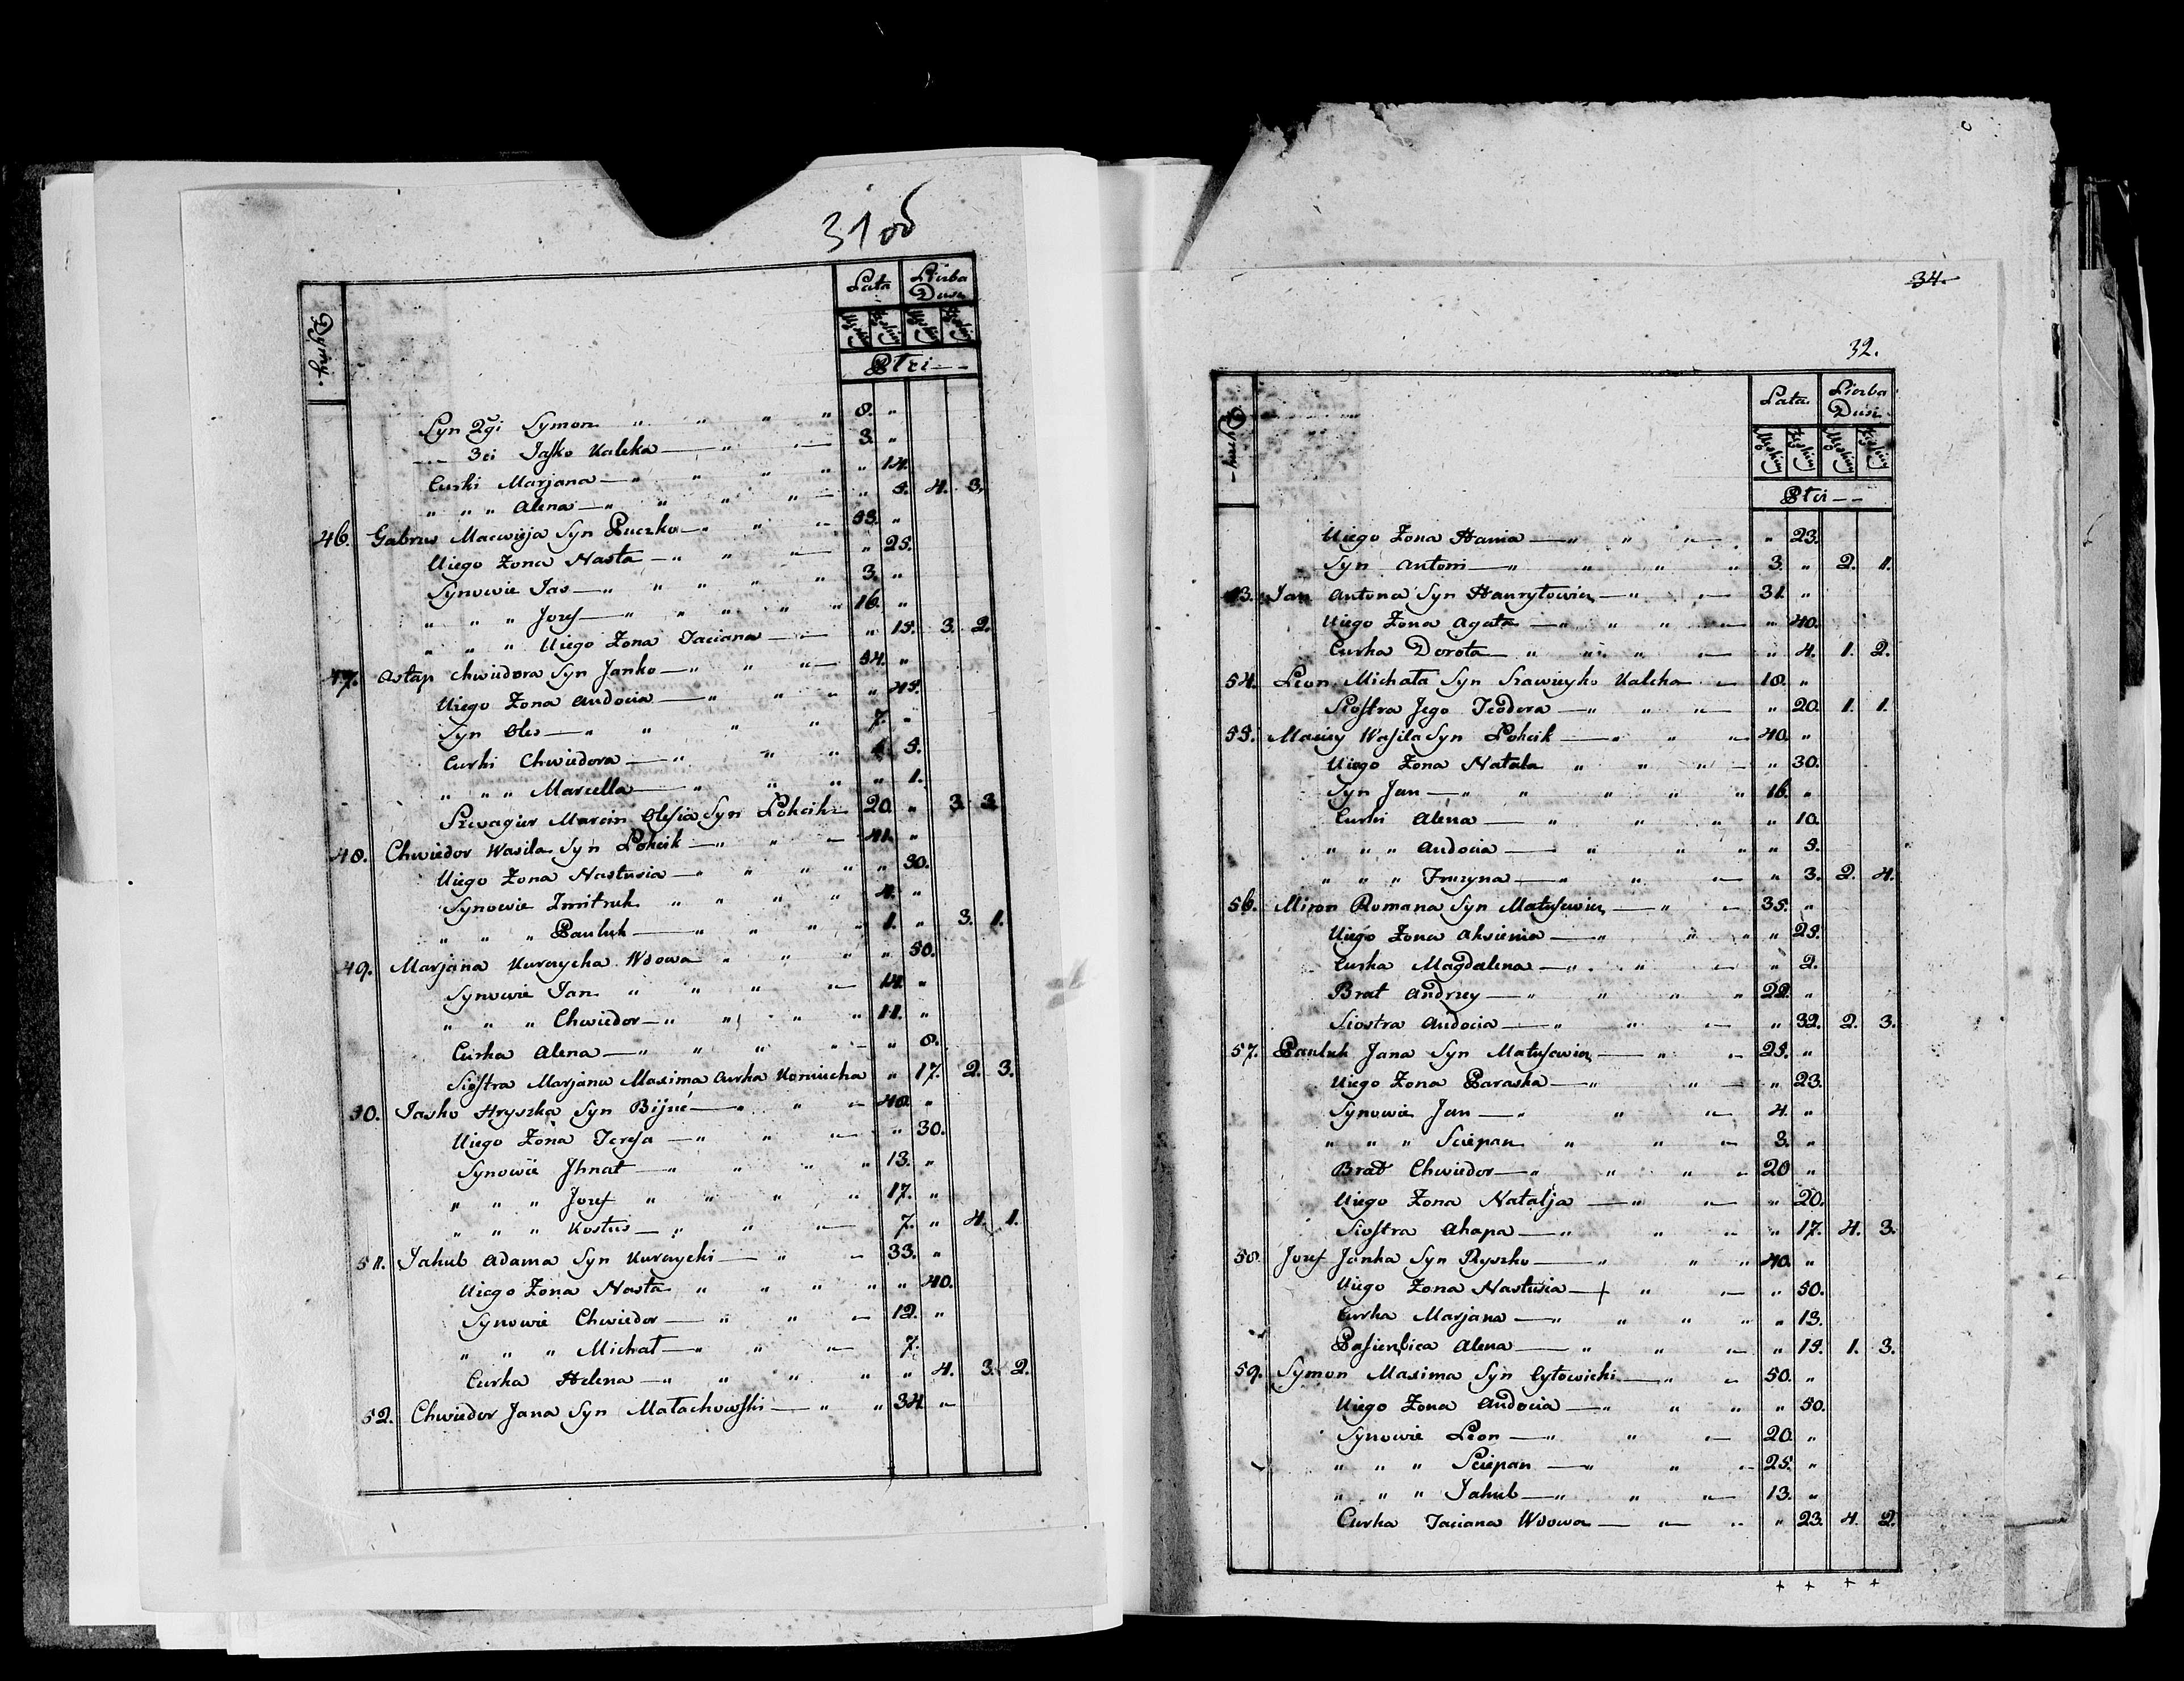 31 об
Dymy.
Lata
Liczba Dusz
Męskiey Żeńskiey Męskiey Żeńskiey
Płci
Syn 2gi Symon " " " " 8. "
— 3ci Jaśko Kaleka — " " — 3. "
Curki Marjana — " " " " " 14.
" " " Alena — " " " " — " 5. 4. 3.
46. Gabruś Macwieja Syn Puczko — " " " — 55. "
Uiego Żona Nasta — " " " — " 25.
Synowie Jas — " " " " " 3. "
" " " Jozef — " " " " " 16. "
" " " Uiego Żona Taciana — — " 15. 3. 2.
47. Astap Chwiedora Syn Janko — " " " — 54. "
Uiego Żona Audocia — " " " " 45.
Syn Oleś — " " " " 7. "
Curki Chwiedora — " " " " 5.
" " " Marcella — " " " " 1.
Szwagier Marcin Olesia Syn Lohcik — 20. " 3. 3.
48. Chwiedor Wasila Syn Lohcik — " " — 41. "
Uiego Żona Nastusia — " " " " " 30.
Synowie Zmitruk " " " " 4. "
" " " Pauluk — " " " " 1. " 3. 1.
49. Marjana Kurczycha Wdowa " " " " 50.
Synowie Jan " " " " — 14. "
" " " Chwiedor — " " " " 11. "
Curka Alena — " " " " — " 8.
Siostra Marjana Maxima Curka Koniucha " 17. 2. 3.
50. Jaśko Hryszka Syn Bijuć — " " — 40. "
Uiego Żona Teresa — " " " — " 30.
Synowie Jhnat — " " " 13. "
" " " Jozef " " " " 17. "
" " " Kostuś — " " " — 7. " 4. 1.
51. Jakub Adama Syn Kurczycki — " — 33. "
Uiego Żona Nasta " " " " " 40.
Synowie Chwiedor — " " — 12. "
" " " Michał — " " " — 7.
Curka Helena — " " " " " 4. 3. 2.
52. Chwiedor Jana Syn Małachowski — " " 34. "
34.
32.
Dymy
Lata
Liczba Dusz
Męskiey Żeńskiey Męskiey Żeńskiey
Płci
Uiego Żona Hania — " " " — " 23.
Syn Antoni — " " " " 3. " 2. 1.
53. Jan Antona Syn Hawryłowicz — " " — 31. "
Uiego Żona Agata — " " " — " 40.
Curka Dorota — " " " — " 4. 1. 2.
54. Leon Michała Syn Szawuyko Kaleka — 18. "
Siostra Jego Teodora — " " " — " 20. 1. 1.
55. Maciey Wasila Syn Lohcik — " " — 40. "
Uiego Żona Natala " " " — " 30.
Syn Jan — " " " " " 16. "
Curki Alena — " " " " 10.
" " " Audocia — " " " " 5.
" " " Fruzyna — " " — " 3. 2. 4.
56. Miron Romana Syn Matusewicz — " — 35. "
Uiego Żona Aksienia — " " " " 25.
Curka Magdalena — " " — " 2.
Brat Andrzey — " " " " 22. "
Siostra Audocia — " " — " 32. 2. 3.
57. Pauluk Jana Syn Matusewicz — " — 25. "
Uiego Żona Paraska — " " — " 23.
Synowie Jan — " " — 4. "
" " " Sciepan " " — 3. "
Brat Chwiedor — " " " — 20 "
Uiego Żona Natalja — " — " 20.
Siostra Ahapa — " " — " 17. 4. 3.
58. Jozef Janka Syn Ryszko — " " " 40. "
Uiego Żona Nastusia — + " — " 50.
Curka Marjana — " " " " " 13.
Pasierbica Alena — " " — " 15. 1. 3.
59. Symon Maxima Syn Cytowicki — " — 50. "
Uiego Żona Audocia — " " " " 50.
Synowie Leon — " " — 20. "
" " " Sciepan — " " — 25. "
" " " Jakub — " " — 13. "
Curka Taciana Wdowa — — — " 23. 4. 2.
+ + + +